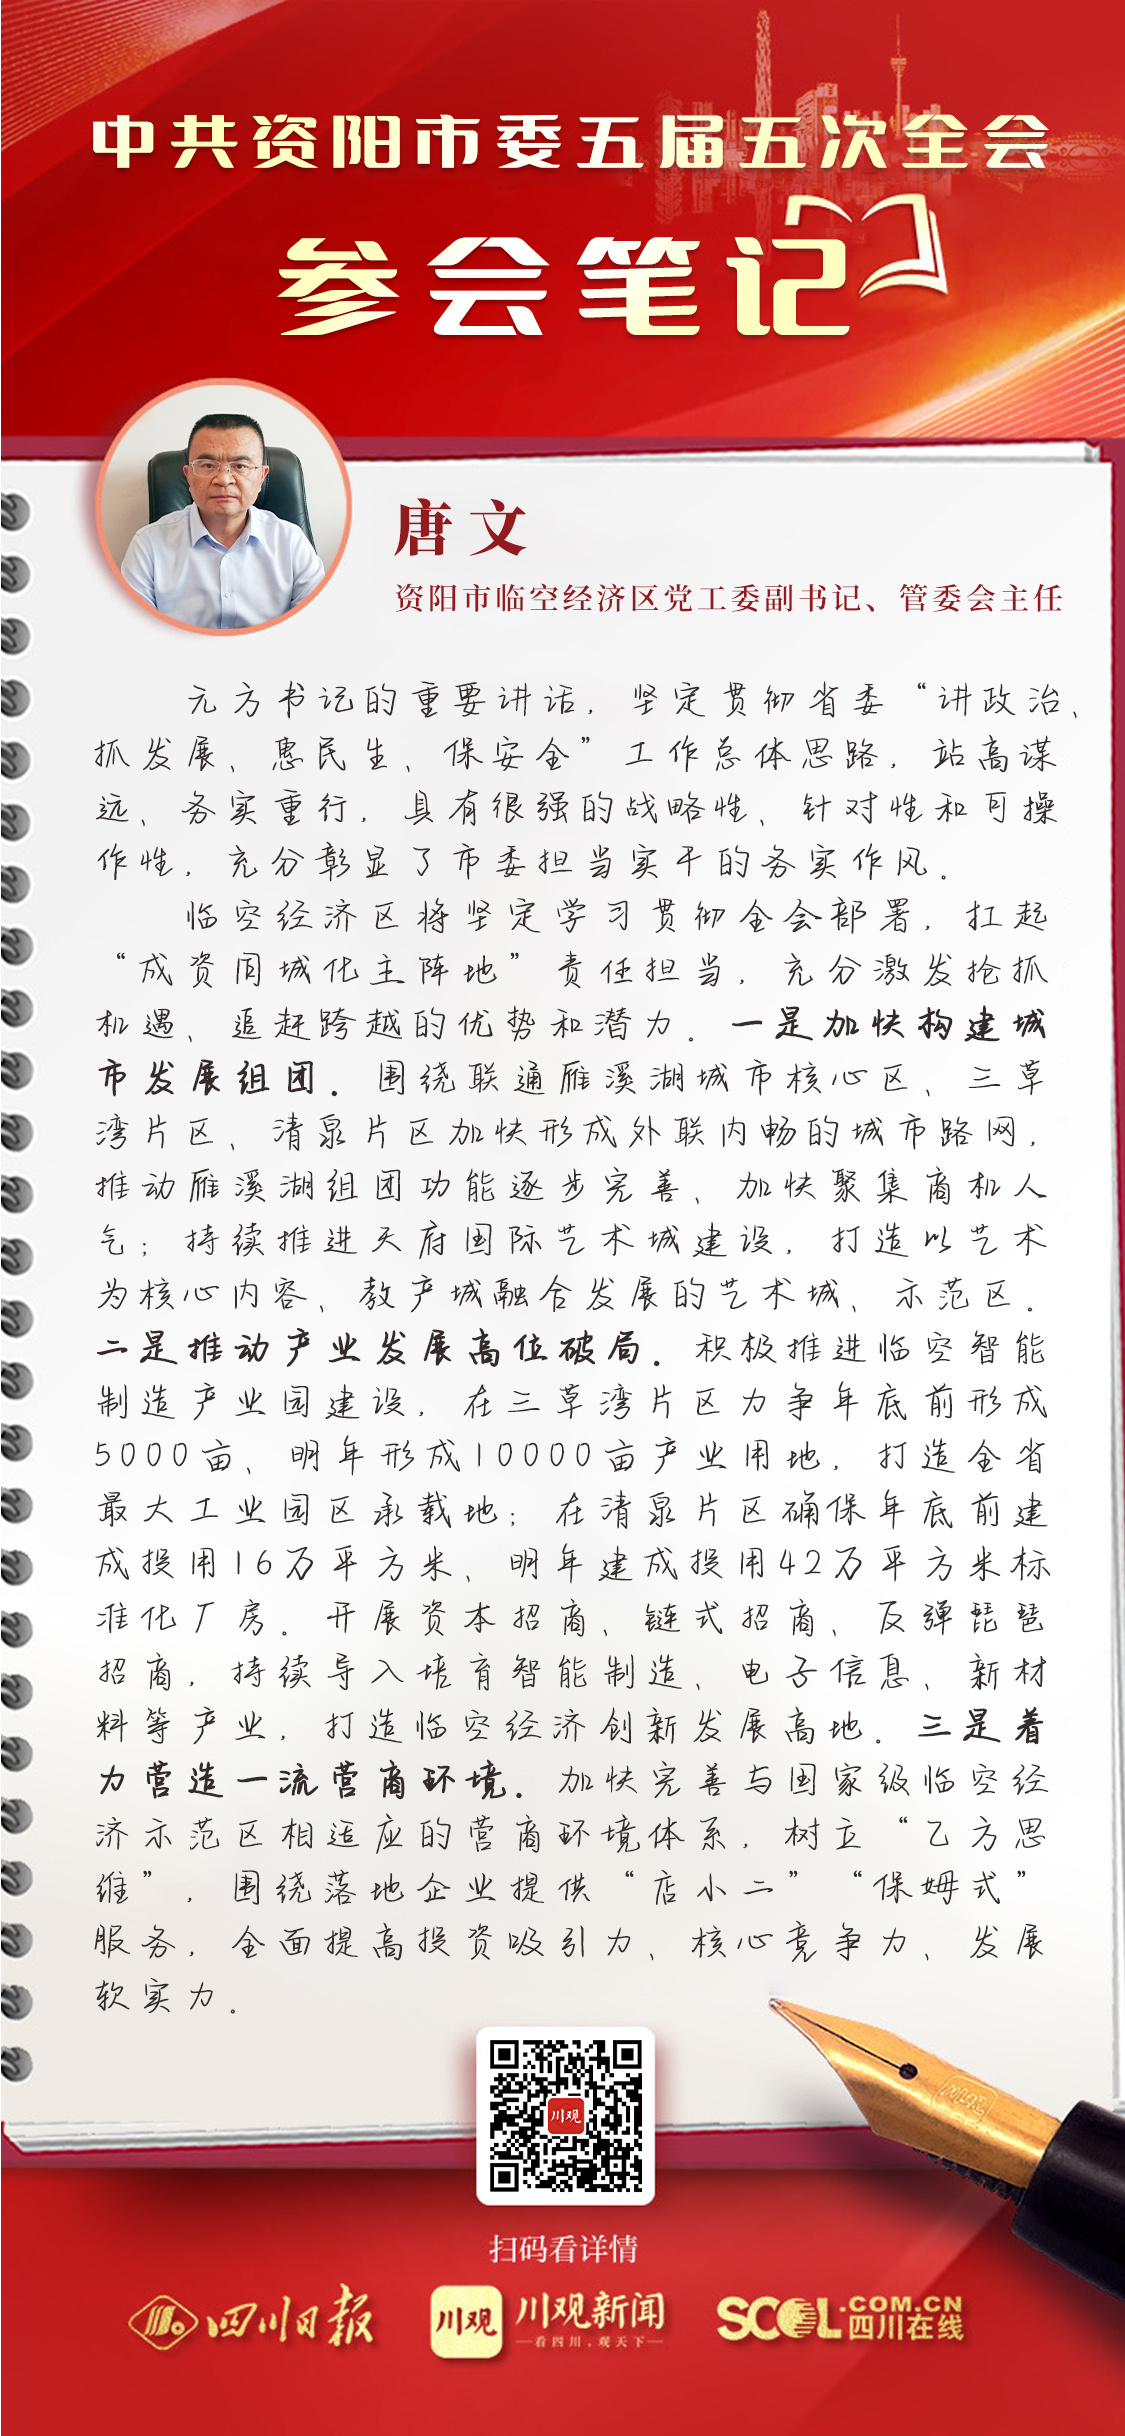 中共资阳市委五届五次全会
参会笔记
唐文
资阳市临空经济区党工委副书记、管委会主任
元方书记的重要讲话，坚定贯彻省委“讲政治、
抓发展、惠民生、保安全”工作总体思路，站高谋
远、务实重行，具有很强的战略性、针对性和可操
作性，充分彰显了市委担当实干的务实作风。
临空经济区将坚定学习贯彻全会部署，扛起
“成资同城化主阵地”责任担当，充分激发抢抓
机遇、追赶跨越的优势和潜力。一是加快构建城
市发展组团。围绕联通雁溪湖城市核心区、三草
湾片区、清泉片区加快形成外联内畅的城市路网，
推动雁溪湖组团功能逐步完善、加快聚集商机人
气；持续推进天府国际艺术城建设，打造以艺术
为核心内容、教产城融合发展的艺术城、示范区。
二是推动产业发展高位破局。积极推进临空智能
制造产业园建设，在三草湾片区力争年底前形成
5000亩、明年形成10000亩产业用地，打造全省
最大工业园区承载地；在清泉片区确保年底前建
成投用16万平方米、明年建成投用42万平方米标
准化厂房。开展资本招商、链式招商、反弹琵琶
招商，持续导入培育智能制造、电子信息、新材
料等产业，打造临空经济创新发展高地。三是着
力营造一流营商环境。加快完善与国家级临空经
济示范区相适应的营商环境体系，树立“乙方思
维”，围绕落地企业提供“店小二”“保姆式”
服务，全面提高投资吸引力、核心竞争力、发展
软实力。
川观
川观
扫码看详情
四川日报
川观
川观新闻
看四川，观天下
SCOL.COM.CN
四川在线